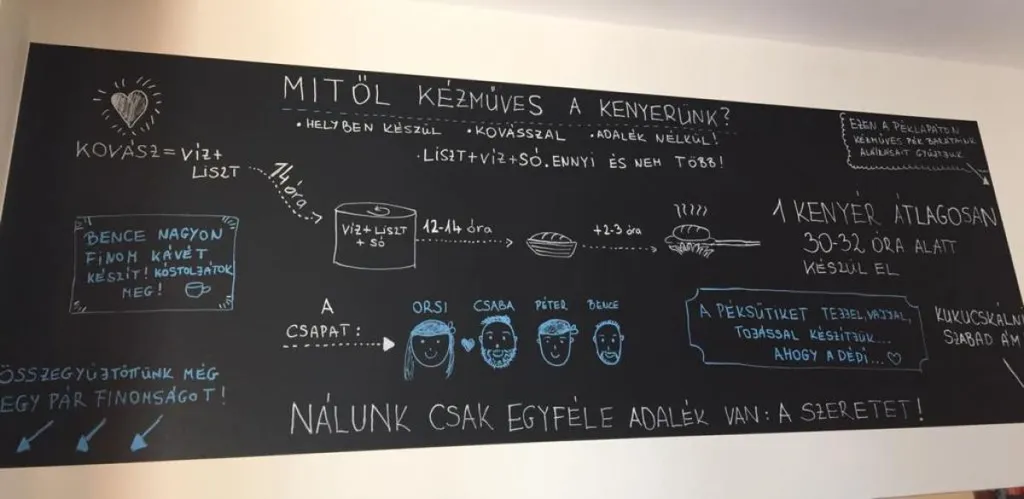 MITŐL KÉZMŰVES A KENYERÜNK?
• HELYBEN KÉSZÜL • KOVÁSSZAL • ADALÉK NÉLKÜL!
• LISZT+VÍZ+SÓ, ENNYI ÉS NEM TÖBB!
EZEN A PÉKLAPÁTON
KÉZMŰVES PÉK BARÁTAINK
ALÁÍRÁSAIT GYŰJTJÜK
KOVÁSZ = VÍZ+
LISZT
14 óra
VÍZ+LISZT
+ SÓ
12-14 óra
+2-3 óra
1 KENYÉR ÁTLAGOSAN
30-32 ÓRA ALATT
KÉSZÜL EL
BENCE NAGYON
FINOM KÁVÉT
KÉSZÍT! KÓSTOLJÁTOK
MEG!
A
CSAPAT:
ORSI CSABA PÉTER BENCE
A PÉKSÜTIKET TEJJEL, VAJJAL,
TOJÁSSAL KÉSZÍTJÜK...
AHOGY A DÉDI...
KUKUCSKÁLNI
SZABAD ÁM
ÖSSZEGYŰJTÖTTÜNK MÉG
EGY PÁR FINOMSÁGOT!
NÁLUNK CSAK EGYFÉLE ADALÉK VAN: A SZERETET!